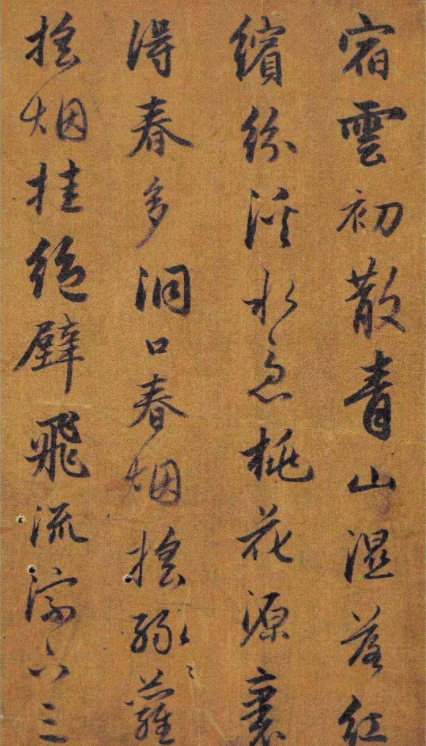 宿雲初散青山濕落紅
繽紛溪水急桃花源裏
得春多洞口春烟搖綠〻蘿
搖烟挂絕壁飛流淙下三